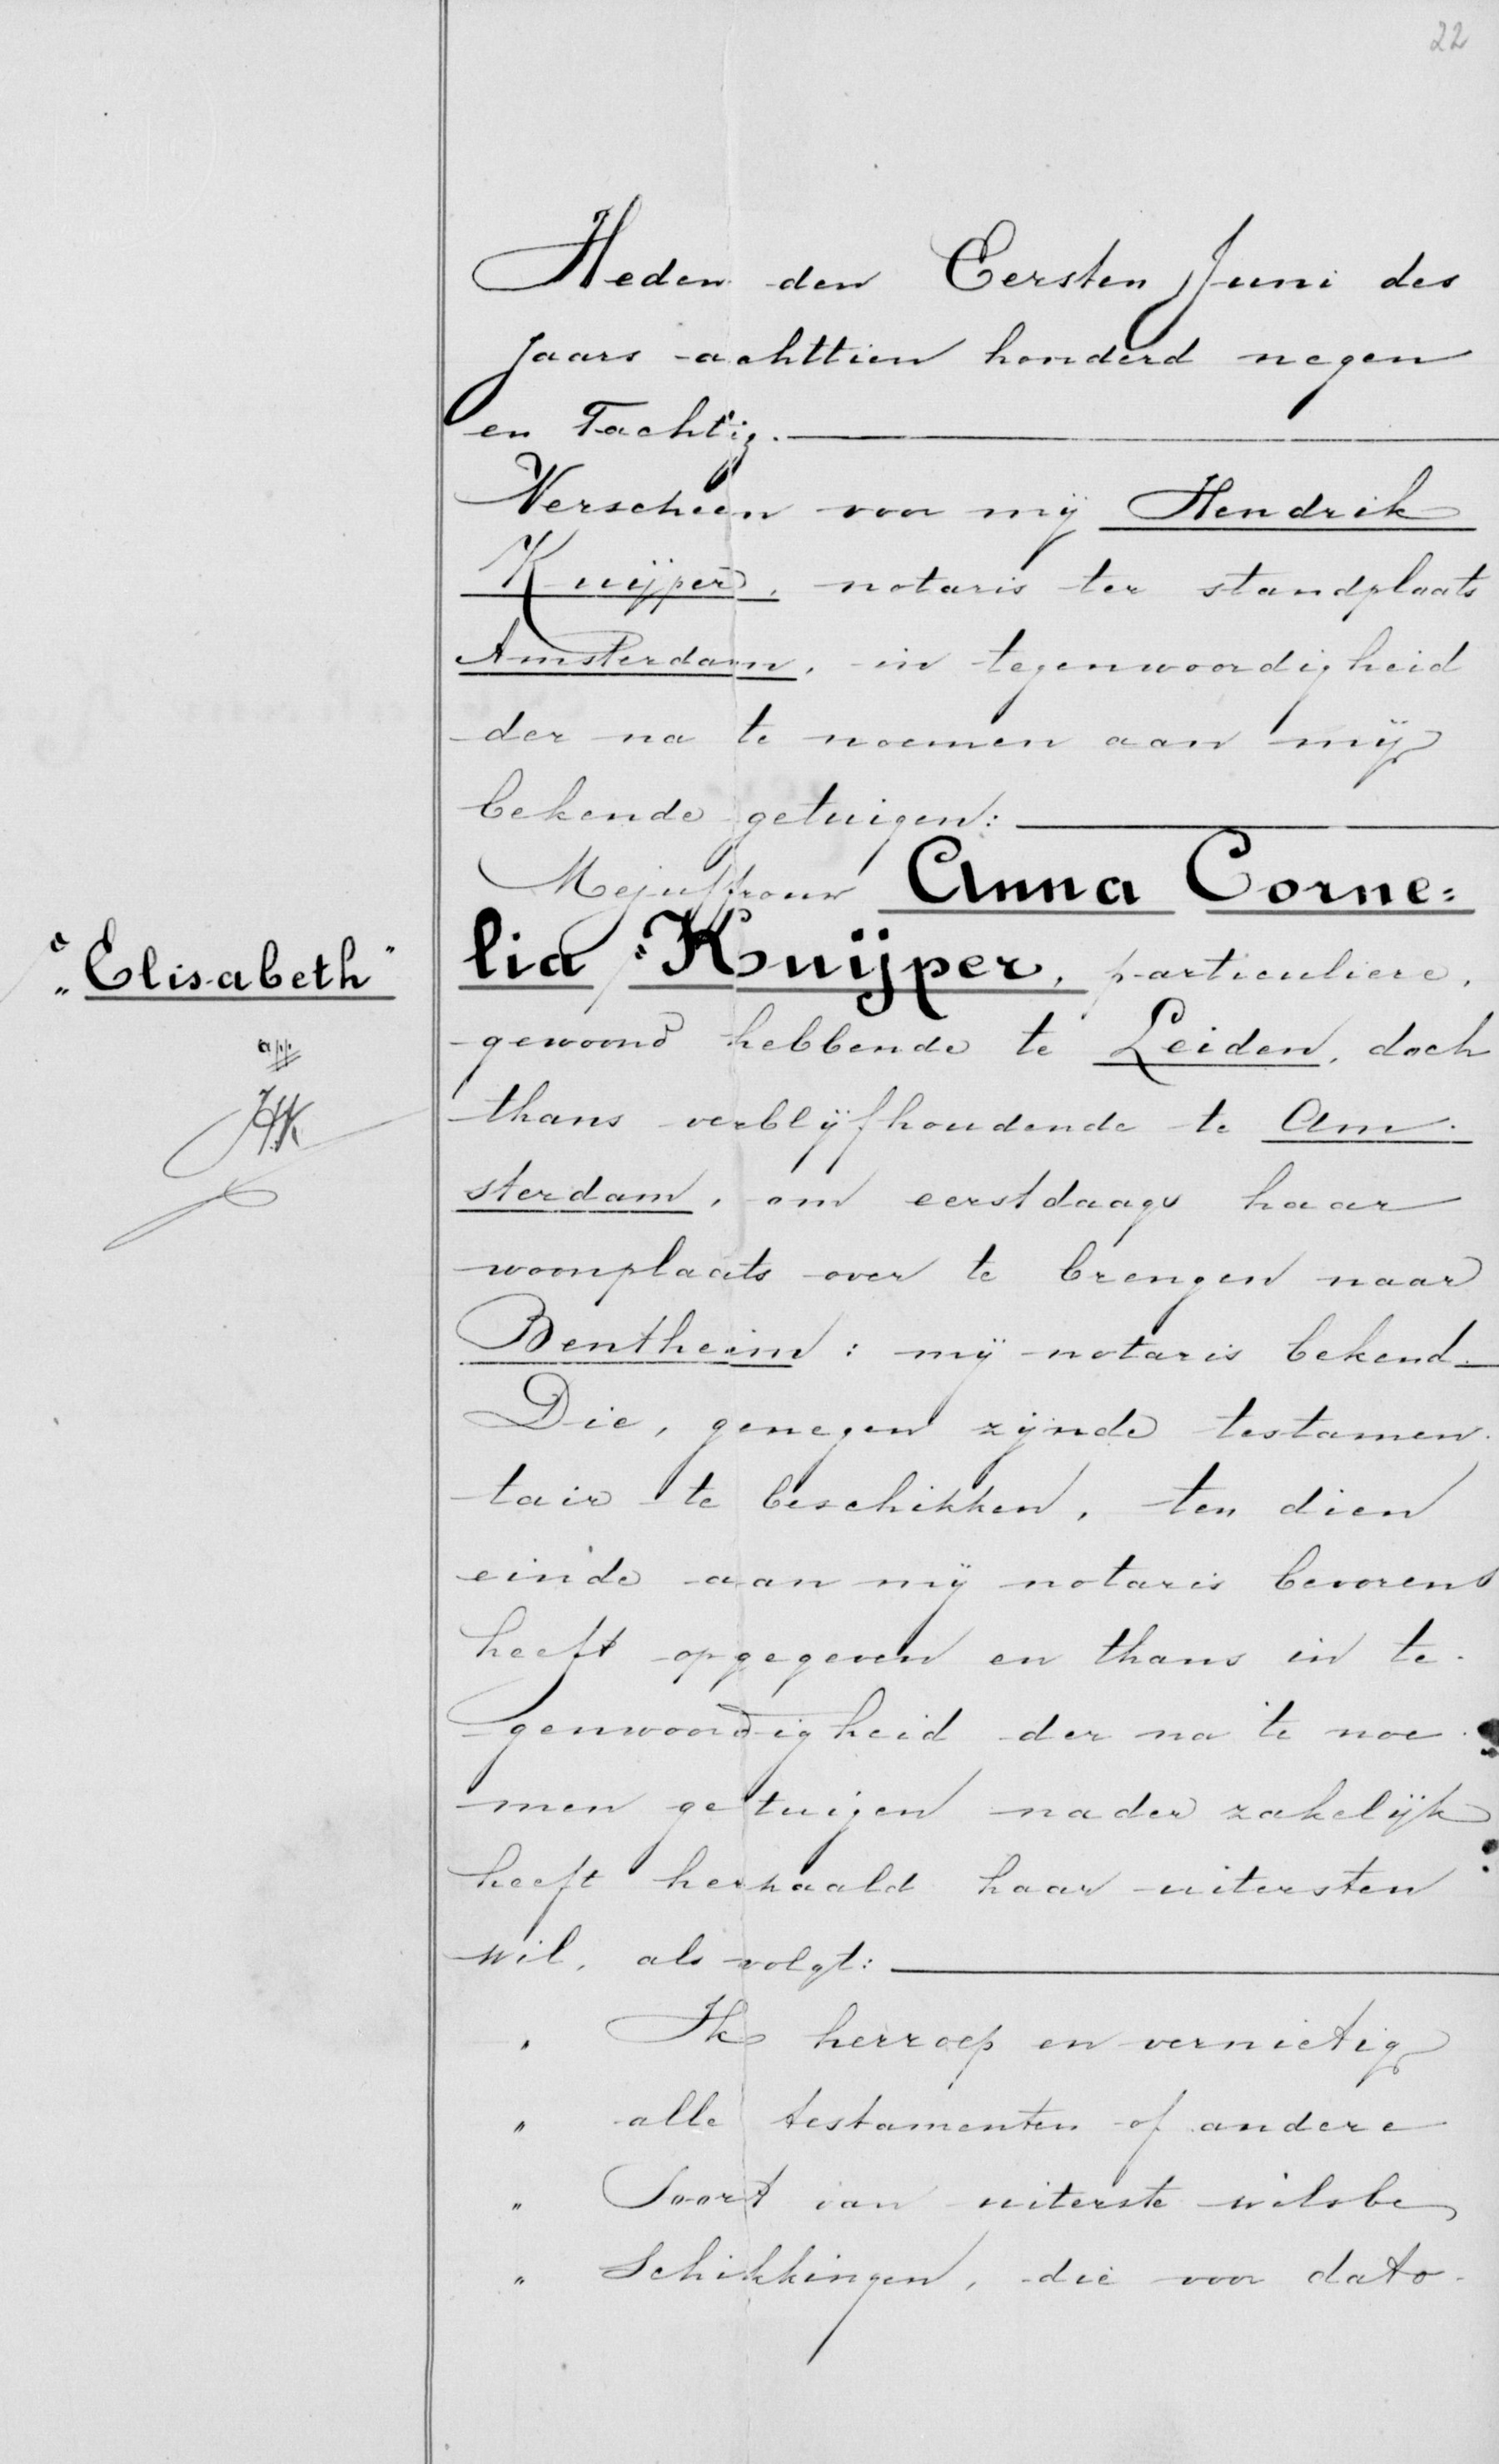 22
Heden den Eersten Juni des
jaars achttien honderd negen
en Tachtig.
Verscheen voor mij Hendrik
Kuijper, notaris ter standplaats
Amsterdam, in tegenwoordigheid
der na te noemen aan mij
bekende getuigen:
Mejuffrouw Anna Corne=
lia Kuijper, particuliere,
"Elisabeth"
app
HK
gewoond hebbende te Leiden, doch
thans verblijfhoudende te Am-
sterdam, om eerstdaags haar
woonplaats over te brengen naar
Bentheim: mij notaris bekend.
Die, genegen zijnde testamen-
tair te beschikken, ten dien
einde aan mij notaris bevorens
heeft opgegeven en thans in te-
genwoordigheid der na te noe-
men getuigen nader zakelijk
heeft herhaald haar uitersten
wil, als volgt:
" Ik herroep en vernietig
" alle testamenten of andere
" Soort van uiterste wilsbe
" Schikkingen, die voor dato